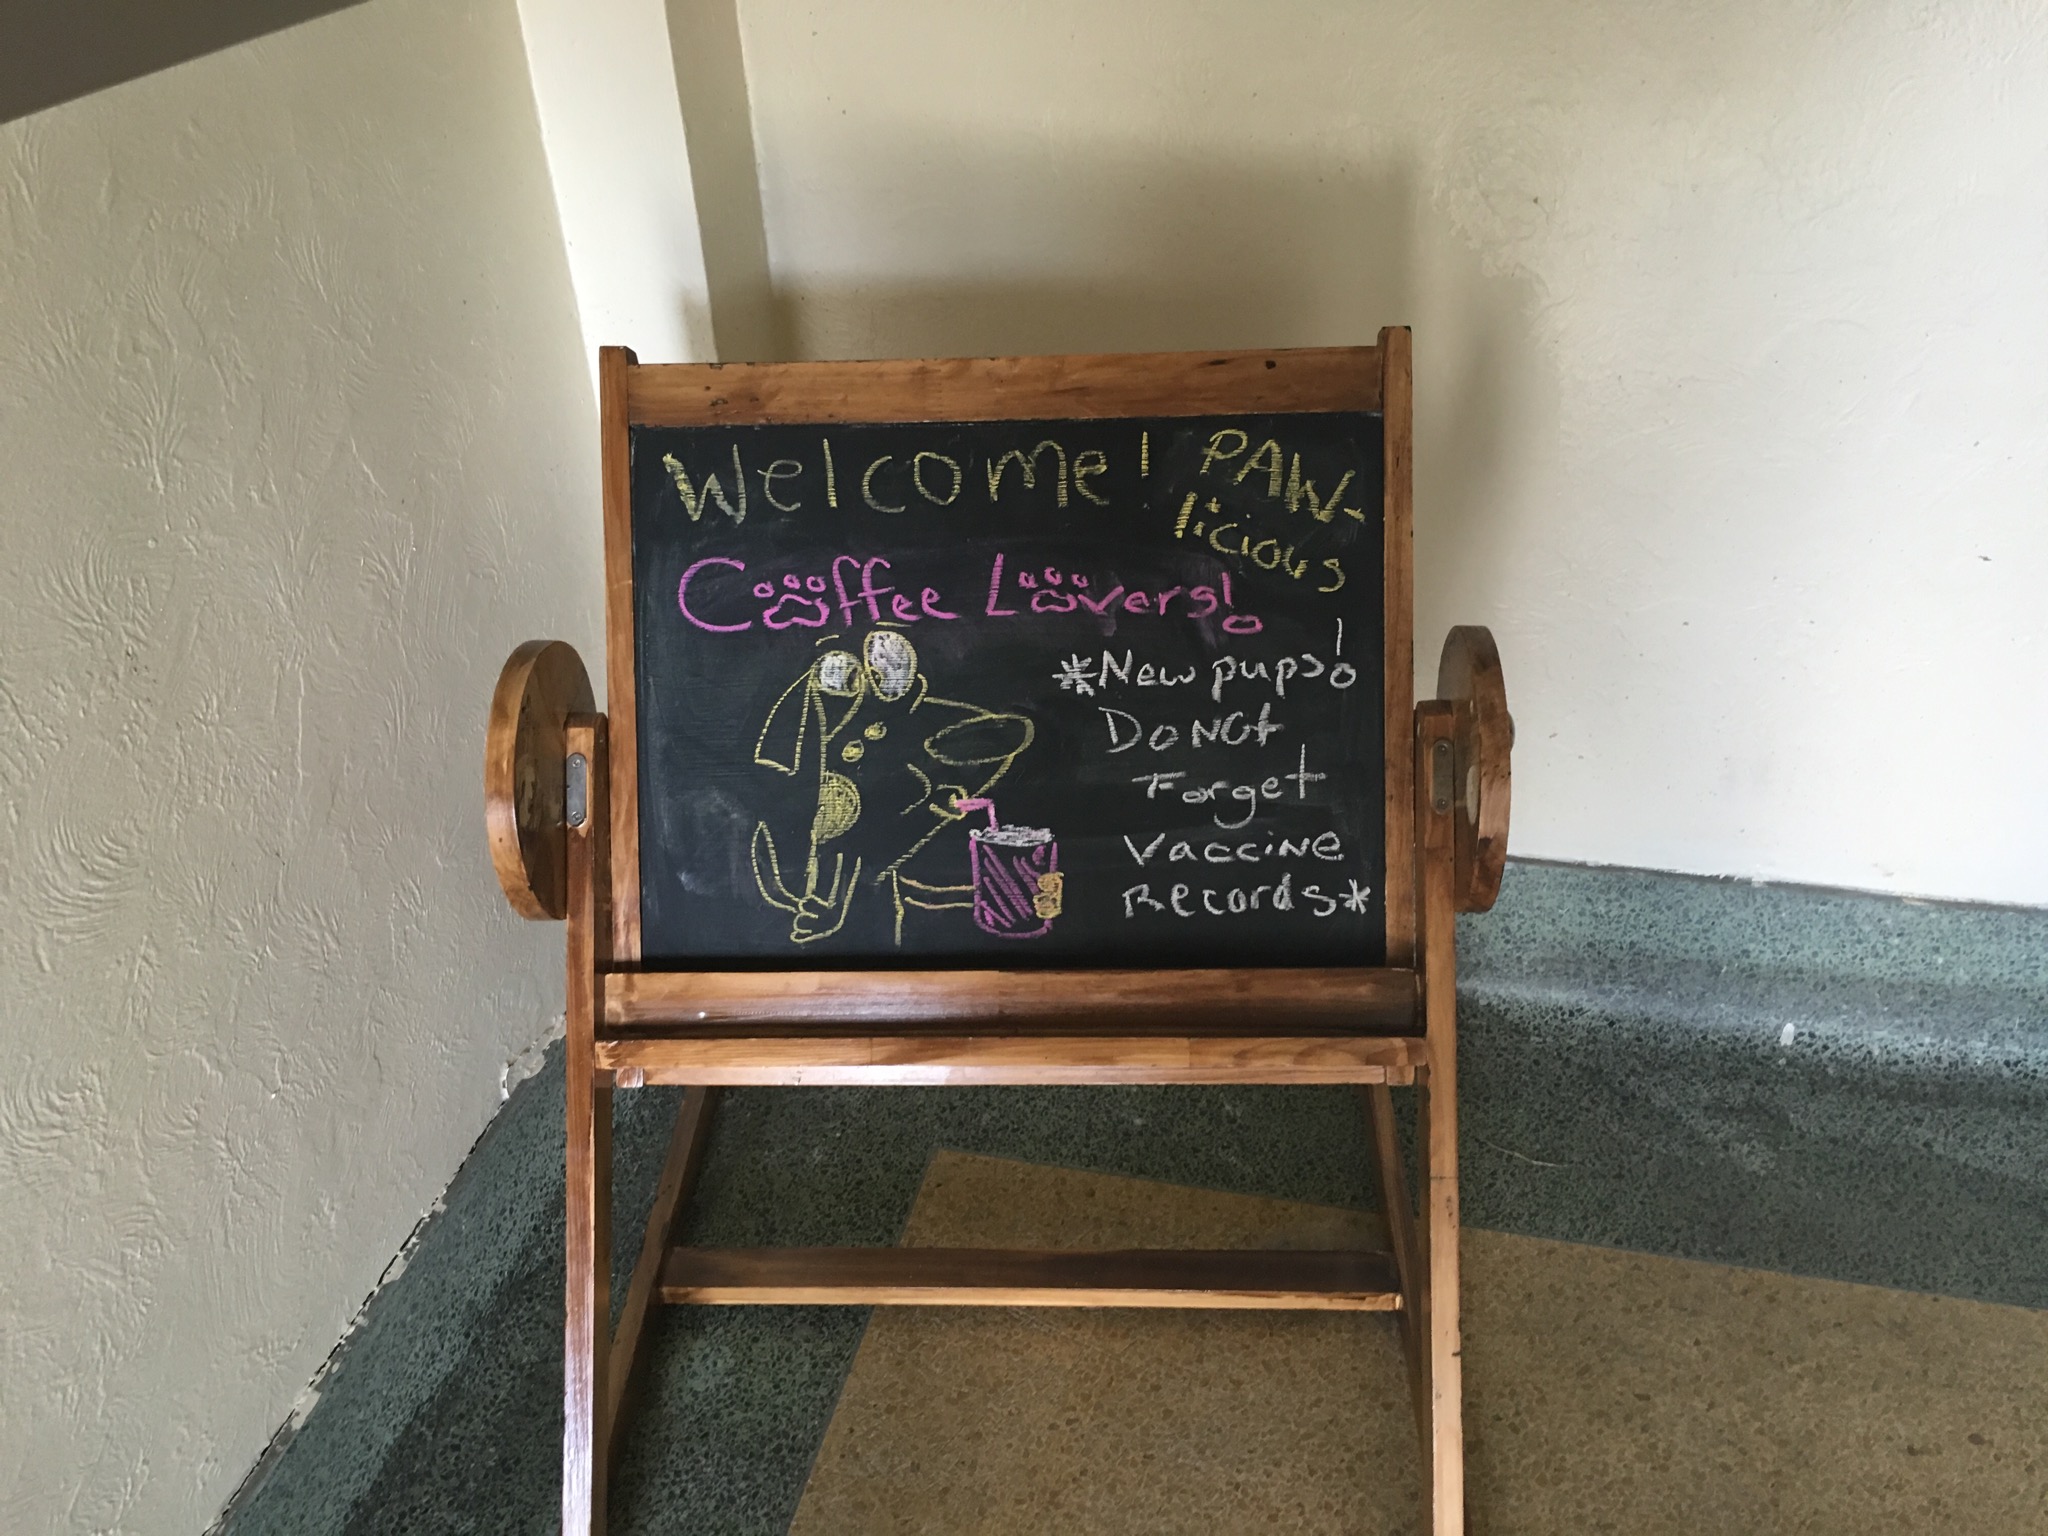 Welcome! PAW-
licious
Coffee Lovers!
*New pups!
Do Not
Forget
Vaccine
Records*